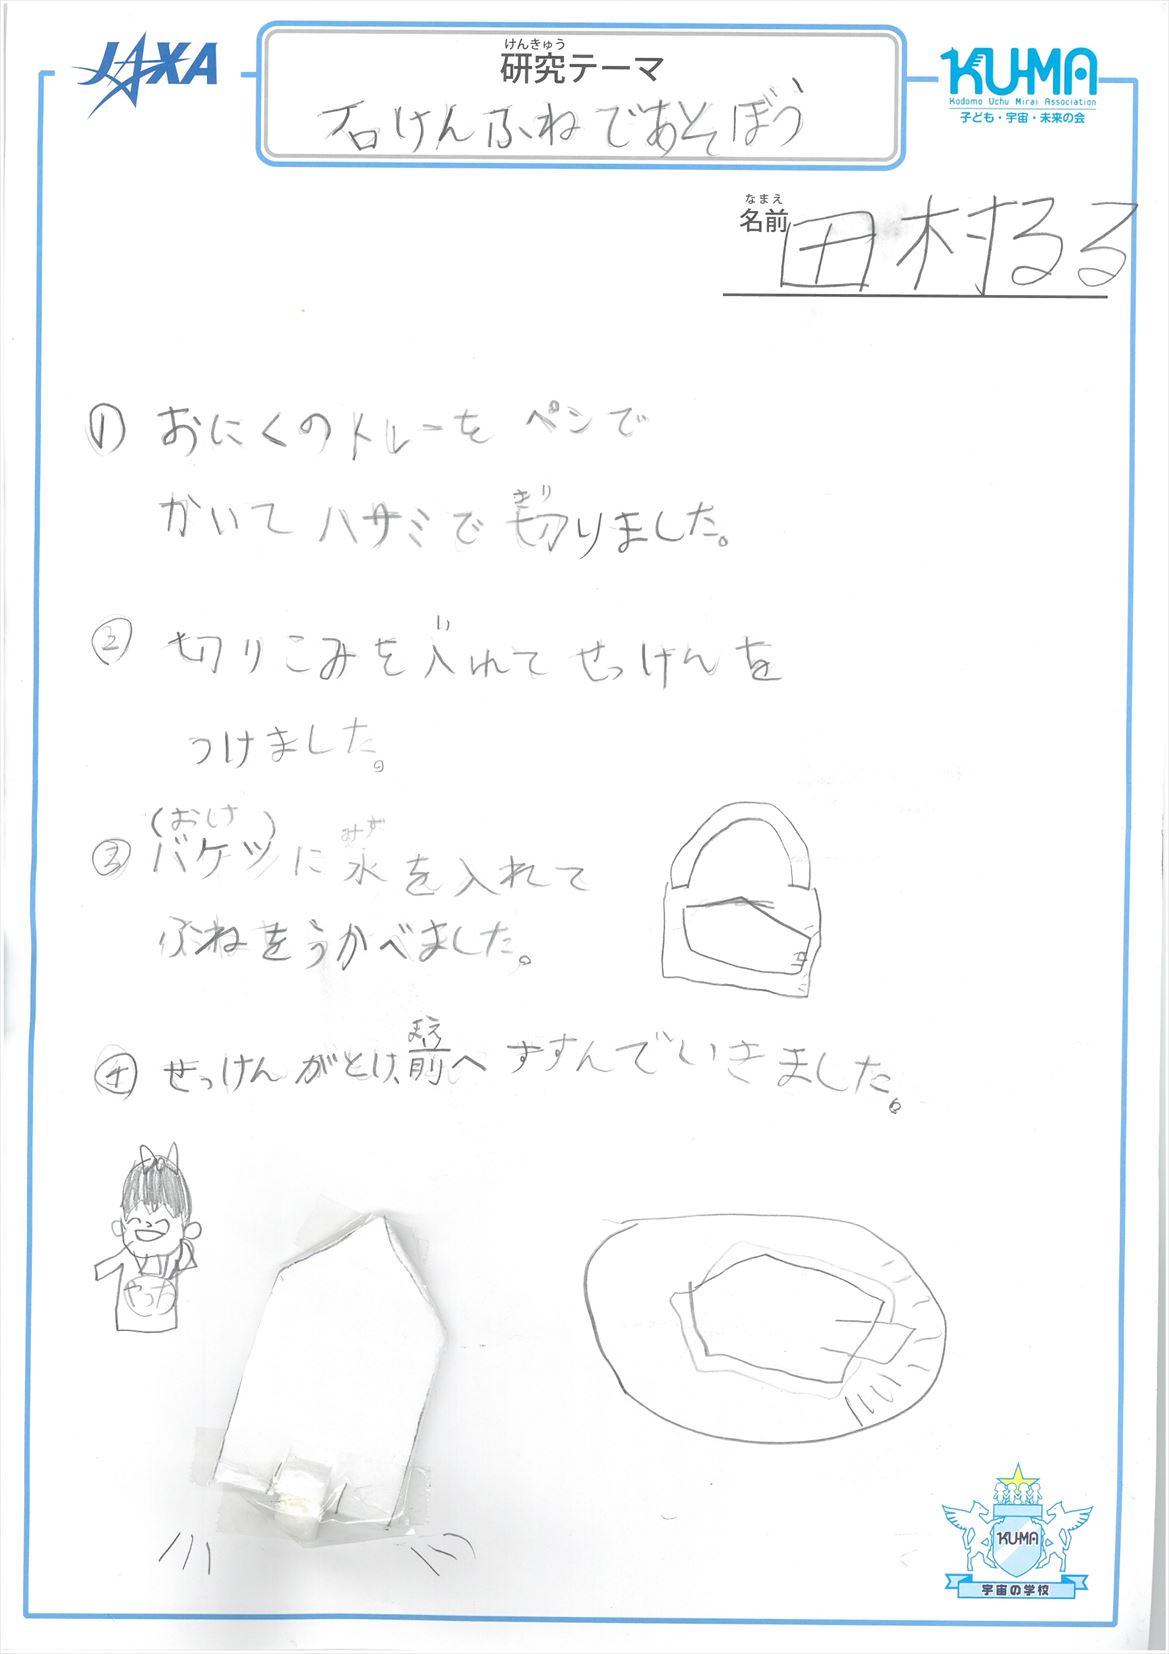 JAXA
けんきゅう
研究テーマ
石けんふねであそぼう
KU-MA
Kodomo Uchu Mirai Association
子ども・宇宙・未来の会
なまえ
名前 田村るる
① おにくのトレーを ペンで
かいて ハサミで 切りました。
き
② 切りこみを入れて せっけんを
い
つけました。
(おけ)
③ バケツに水を入れて
みず
ふねをうかべました。
④ せっけんがとけ、前へ すすんでいきました。
まえ
やった
KU-MA
宇宙の学校